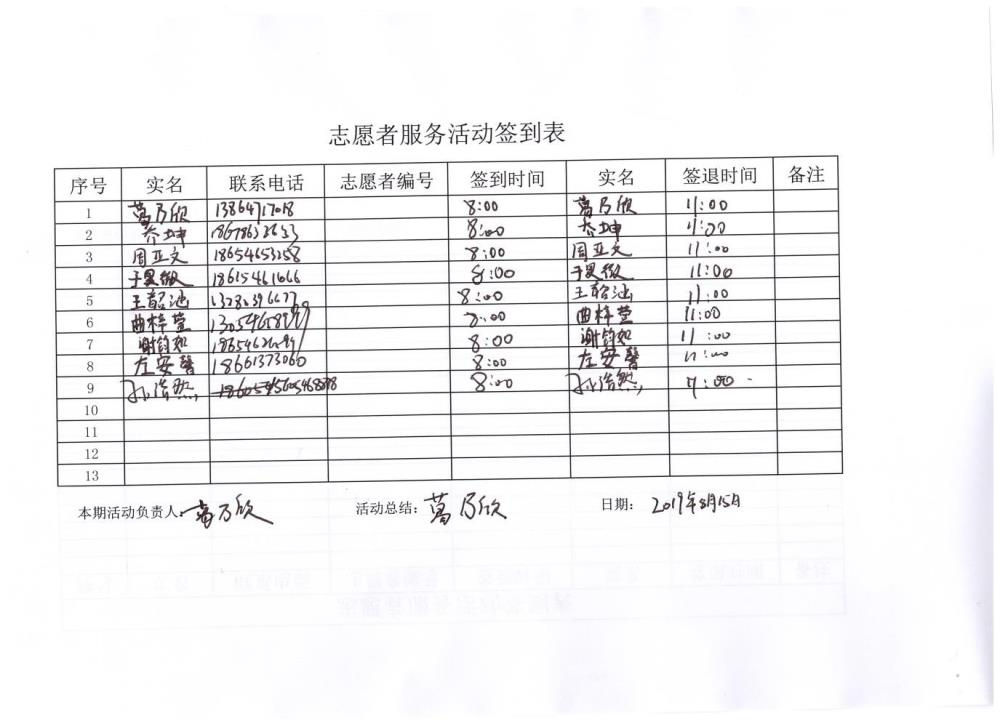 志愿者服务活动签到表
序号 实名 联系电话 志愿者编号 签到时间 实名 签退时间 备注
1 葛乃欣 13864717018 8:00 葛乃欣 11:00
2 乔坤 8:00 乔坤 11:00
3 周亚文 18654653258 8:00 周亚文 11:00
4 于昊薇 18615461666 8:00 于昊薇 11:00
5 8:00 11:00
6 曲梓萱 8:00 曲梓萱 11:00
7 谢钧如 8:00 谢钧如 11:00
8 左安馨 18661373060 8:00 左安馨 11:00
9 孙浩然 8:00 孙浩然 11:00
10
11
12
13
本期活动负责人: 葛乃欣 活动总结: 葛乃欣 日期: 2019年8月15日